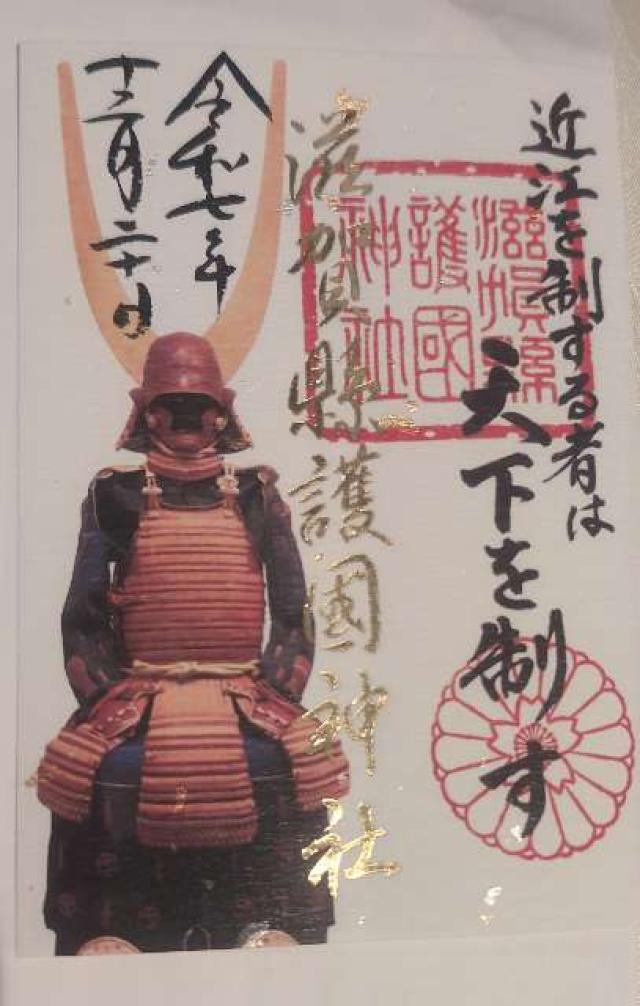 近江を制する者は
天下を制す
滋賀縣護國神社
滋賀縣
護國
神社
令和七年
十二月二十日